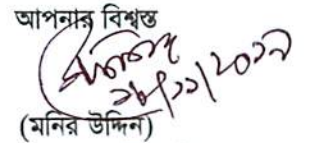 আপনার বিশ্বস্ত
২৮/১১/২০১৭
(মনির উদ্দিন)